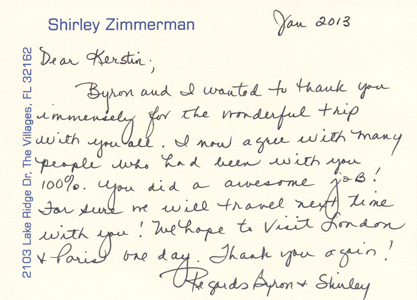 Shirley Zimmerman
Jan 2013
2103 Lake Ridge Dr, The Villages, FL 32162
Dear Kerstin,
Byron and I wanted to thank you
immensely for the wonderful trip
with you all. I now agree with many
people who had been with you
100%. You did a awesome job!
For sure we will travel next time
with you! We hope to visit London
& Paris one day. Thank you again!
Regards Byron & Shirley